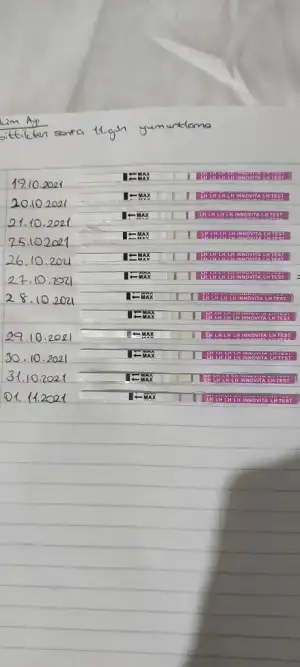 Ayı
bittikten sonra 11.gün yumurtlama
19.10.2021 MAX MAX LH LH LH LH INNOVITA LH TEST
20.10.2021 MAX LH LH LH LH INNOVITA LH TEST
21.10.2021 MAX LH LH LH LH INNOVITA LH TEST
25.10.2021 MAX LH LH LH LH INNOVITA LH TEST
26.10.2021 MAX MAX LH LH LH LH INNOVITA LH TEST
27.10.2021 MAX MAX LH LH LH LH INNOVITA LH TEST
28.10.2021 MAX LH LH LH LH INNOVITA LH TEST
MAX MAX LH LH LH LH INNOVITA LH TEST
29.10.2021 MAX LH LH LH LH INNOVITA LH TEST
30.10.2021 MAX MAX LH LH LH LH INNOVITA LH TEST
31.10.2021 MAX MAX LH LH LH LH INNOVITA LH TEST
01.11.2021 MAX LH LH LH LH INNOVITA LH TEST